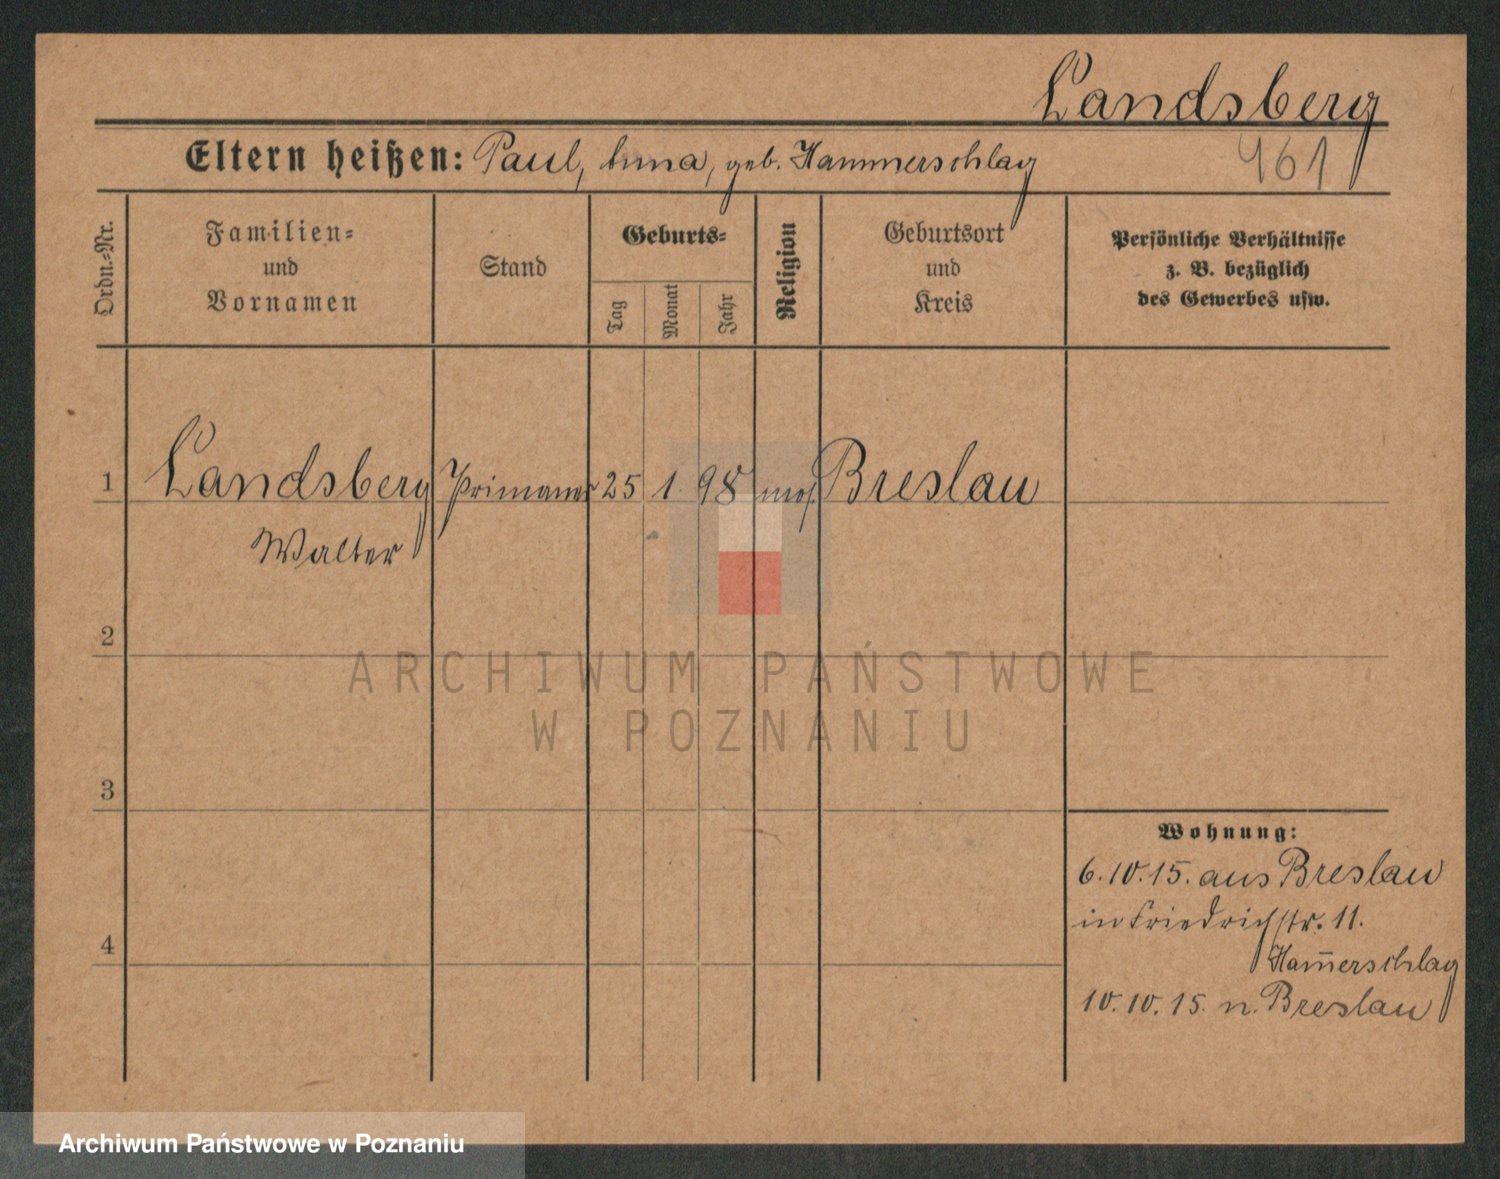 Landsberg
461
Eltern heißen: Paul, Anna, geb. Hammerschlag
Ordn.-Nr.
Familien-
und
Vornamen
Stand
Geburts-
Tag
Monat
Jahr
Religion
Geburtsort
und
Kreis
Persönliche Verhältnisse
z. B. bezüglich
des Gewerbes usw.
1
Landsberg
Primaner
25
1.
98
mos.
Breslau
Walter
2
3
4
Wohnung:
6.10.15. aus Breslau
in Friedrichstr. 11.
Ham̅erschlag
10.10.15. n. Breslau
ARCHIWUM PAŃSTWOWE
W POZNANIU
Archiwum Państwowe w Poznaniu